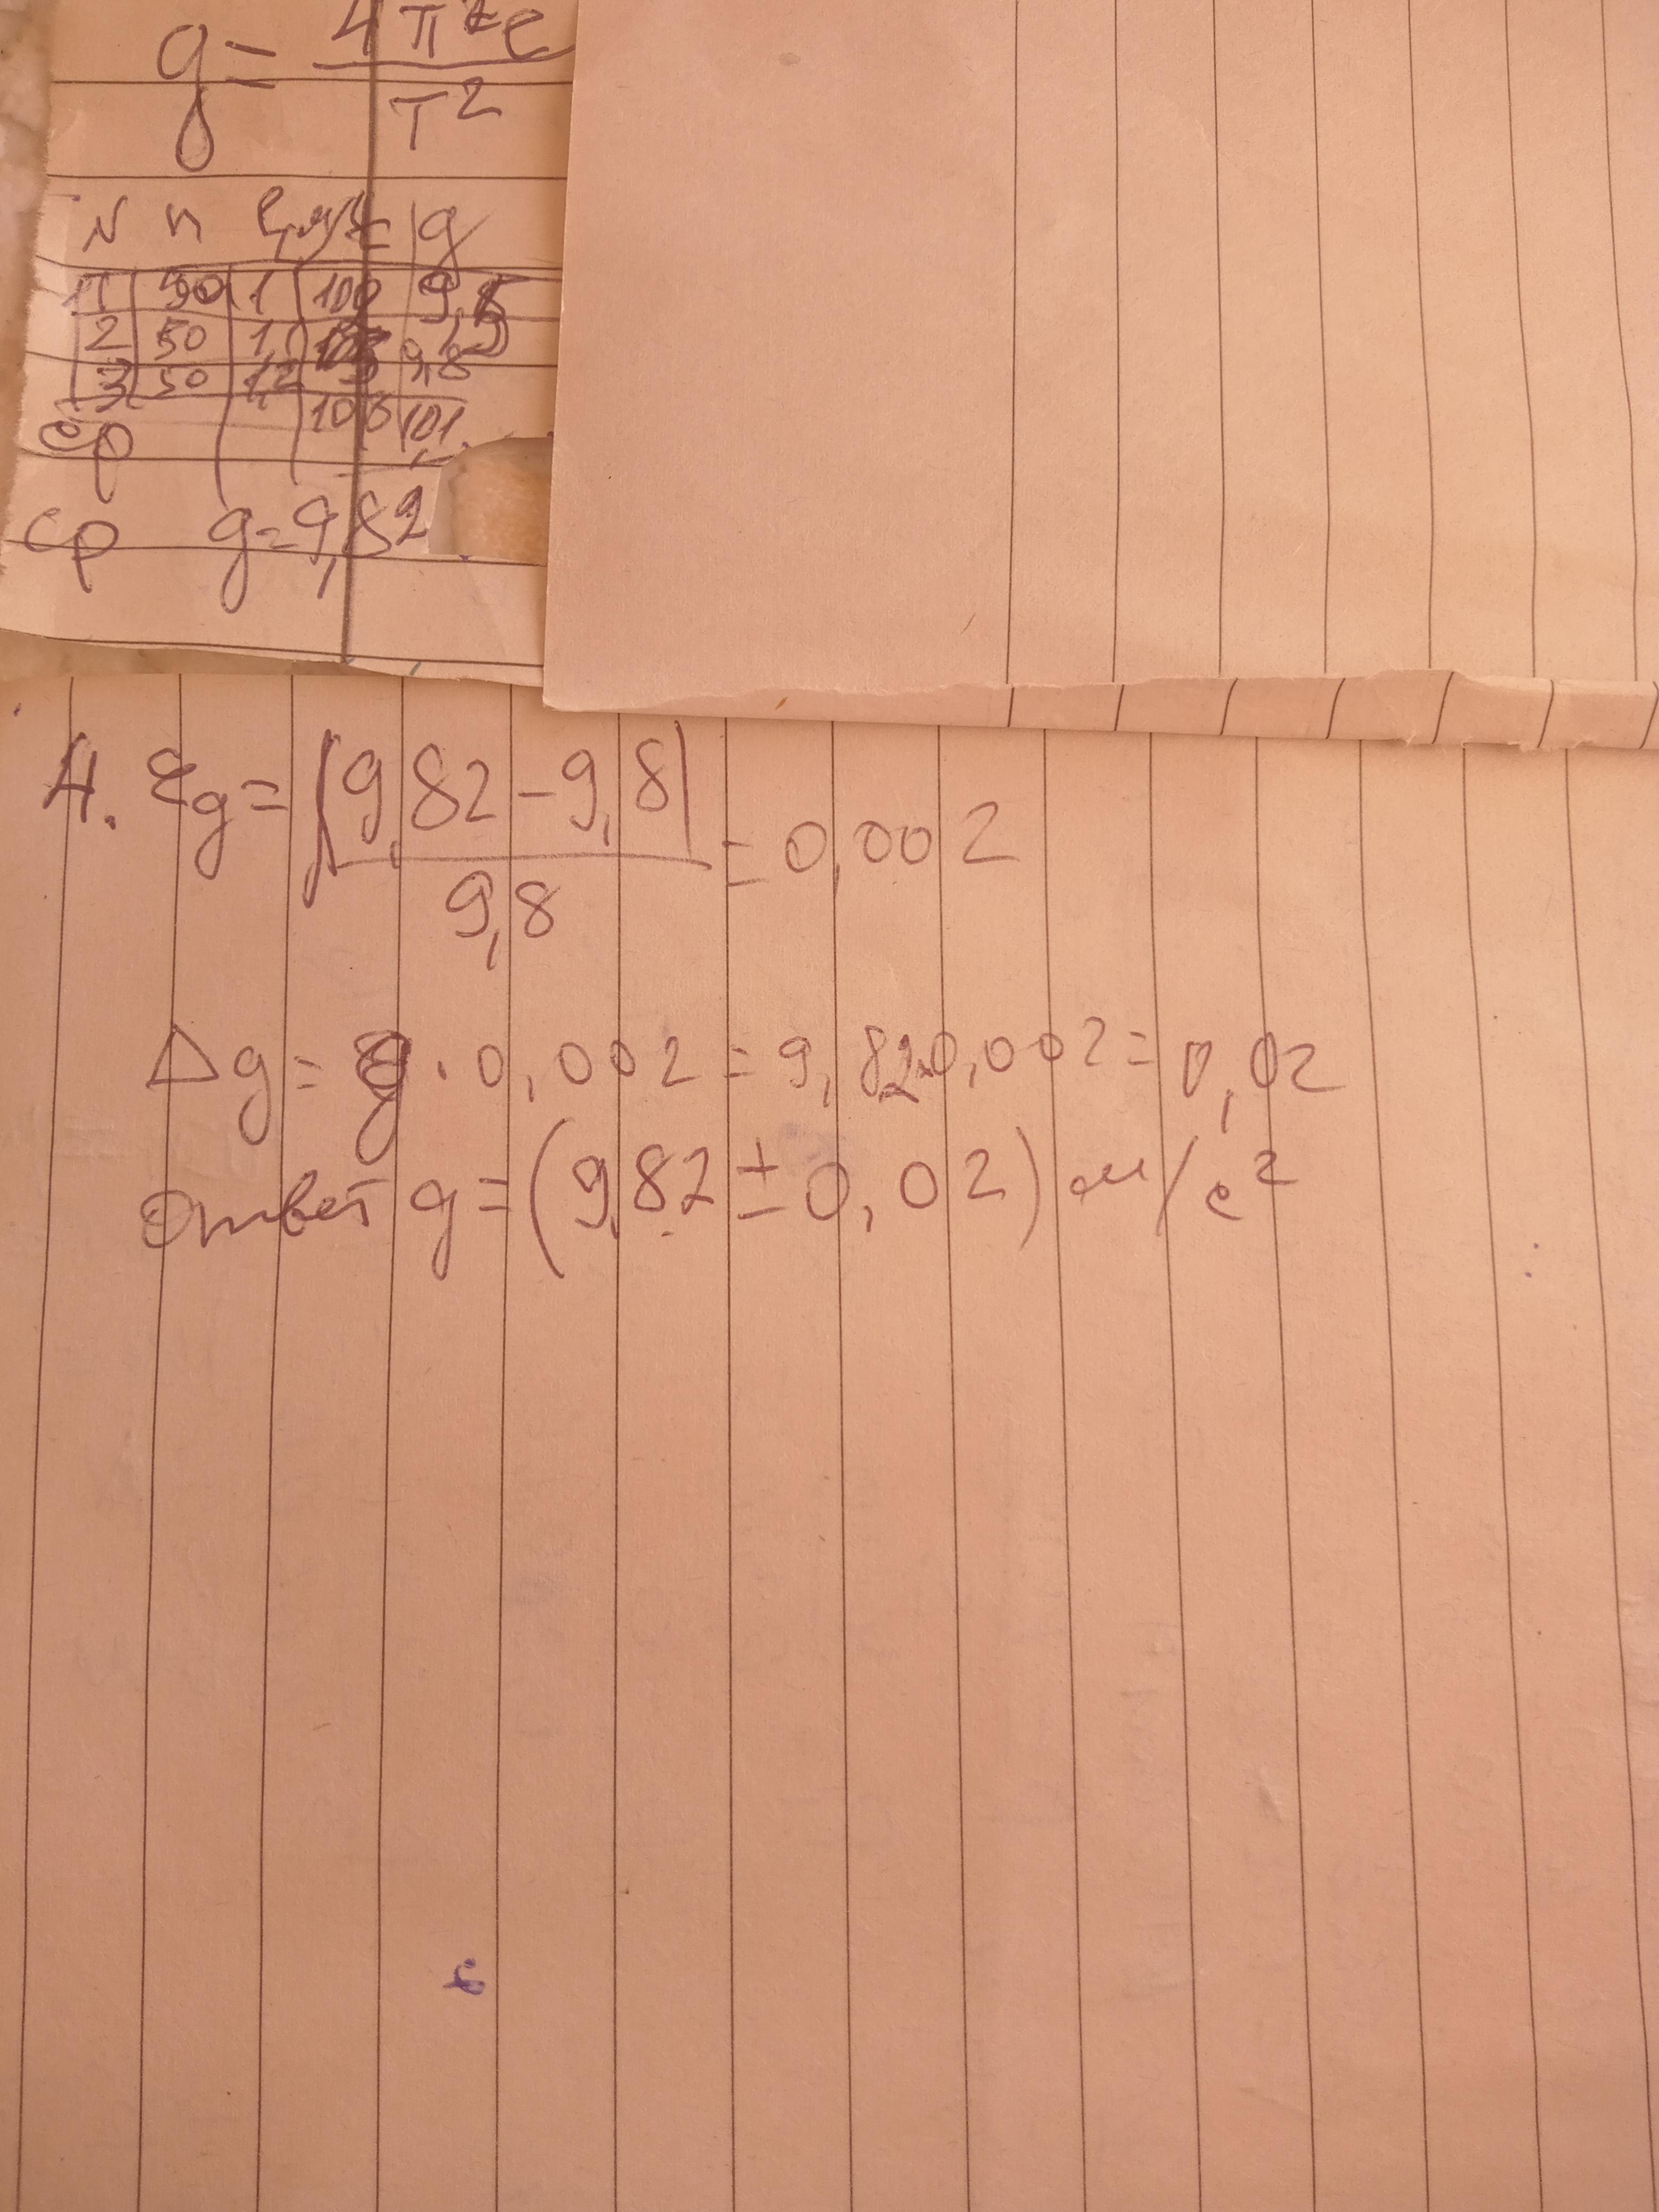 g = 4π²l
T²
N n l, м t, c g
1 50 1 100
2 50 1,1
3 50 1,2 9,8
ср
ср g = 9,82
4. εg = |9,82 - 9,8| / 9,8 = 0,002
Δg = g · 0,002 = 9,82·0,002 = 0,02
ответ g = (9,82 ± 0,02) м/с²